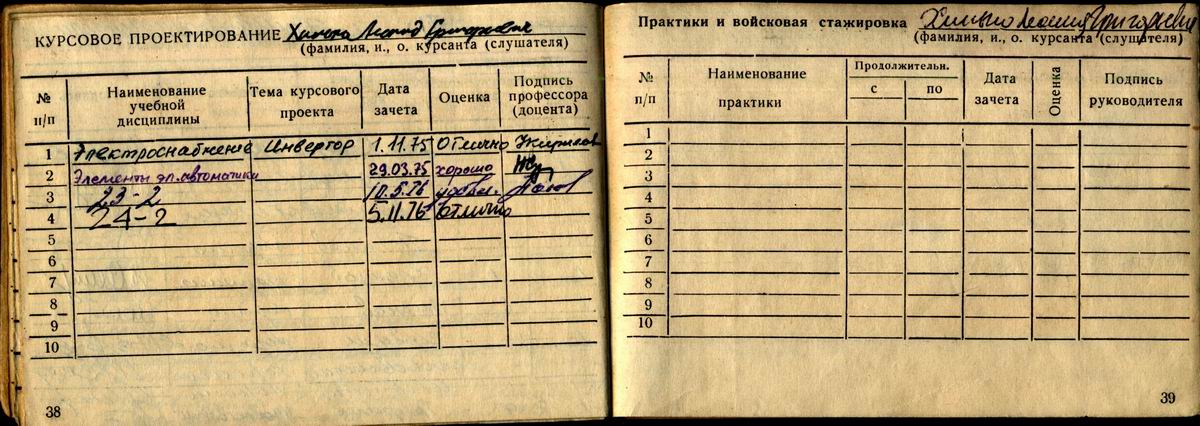 КУРСОВОЕ ПРОЕКТИРОВАНИЕ Леонид Григорьевич
(фамилия, и., о. курсанта (слушателя)
№ п/п Наименование учебной дисциплины Тема курсового проекта Дата зачета Оценка Подпись профессора (доцента)
1 Электроснабжение Инвертор 1.11.75 Отлично
2 Элементы эл.автоматики 29.03.75 хорошо
3 23-2 10.5.76 удовл.
4 24-2 5.11.76 отлично
5
6
7
8
9
10
38
Практики и войсковая стажировка Леонид Григорьевич
(фамилия, и., о. курсанта (слушателя)
№ п/п Наименование практики Продолжительн. с по Дата зачета Оценка Подпись руководителя
1
2
3
4
5
6
7
8
9
10
39